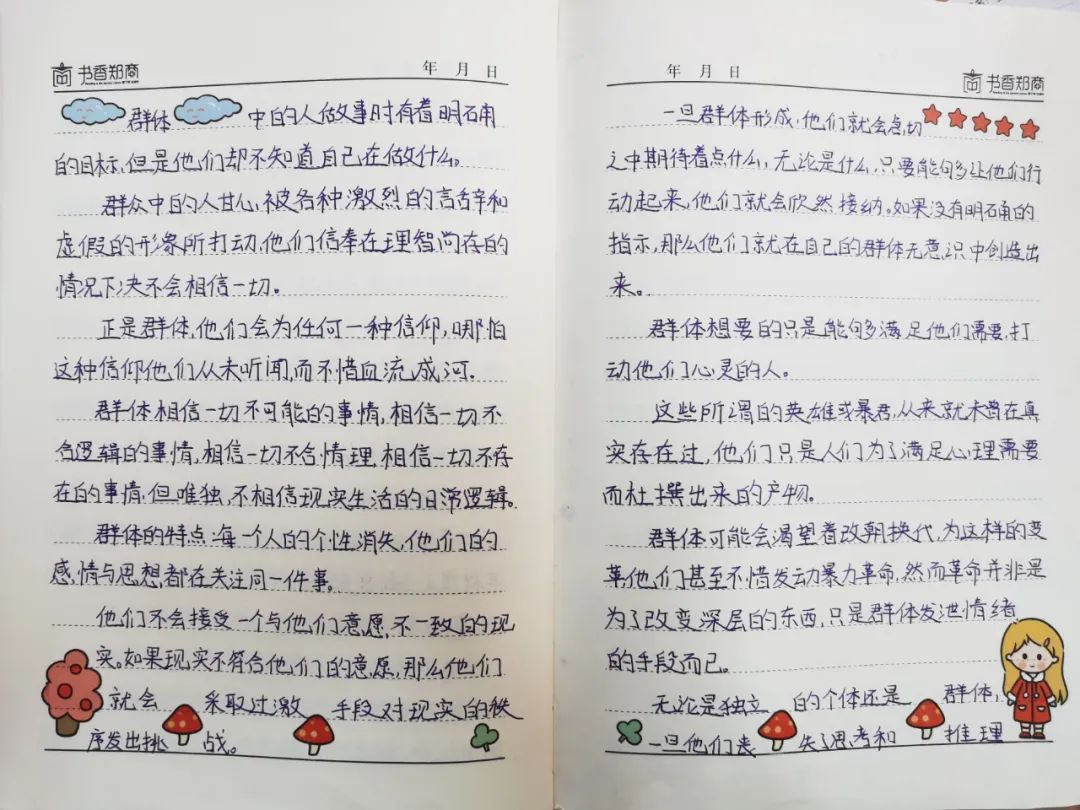 书香郑商
年 月 日
群体中的人做事时有着明确
的目标,但是他们却不知道自己在做什么。
群众中的人甘心,被各种激烈的言辞和
虚假的形象所打动,他们信奉在理智尚存的
情况下决不会相信一切。
正是群体,他们会为任何一种信仰,哪怕
这种信仰他们从未听闻,而不惜血流成河.
群体相信一切不可能的事情,相信一切不
合逻辑的事情,相信一切不合情理,相信一切不存
在的事情,但唯独,不相信现实生活的日常逻辑。
群体的特点:每一个人的个性消失,他们的
感情与思想都在关注同一件事。
他们不会接受一个与他们意愿不一致的现
实。如果现实不符合他们的意愿,那么他们
就会采取过激手段对现实的秩
序发出挑战。
年 月 日
书香郑商
一旦群体形成,他们就会急切
之中期待着点什么,无论是什么,只要能够让他们行
动起来,他们就会欣然接纳。如果没有明确的
指示,那么他们就在自己的群体无意识中创造出
来。
群体想要的只是能够满足他们需要,打
动他们心灵的人。
这些所谓的英雄或暴君,从来就未曾在真
实存在过,他们只是人们为了满足心理需要
而杜撰出来的产物。
群体可能会渴望着改朝换代,为这样的变
革他们甚至不惜发动暴力革命,然而革命并非是
为了改变深层的东西,只是群体发泄情绪
的手段而已。
无论是独立的个体还是群体,
一旦他们丧失了思考和推理